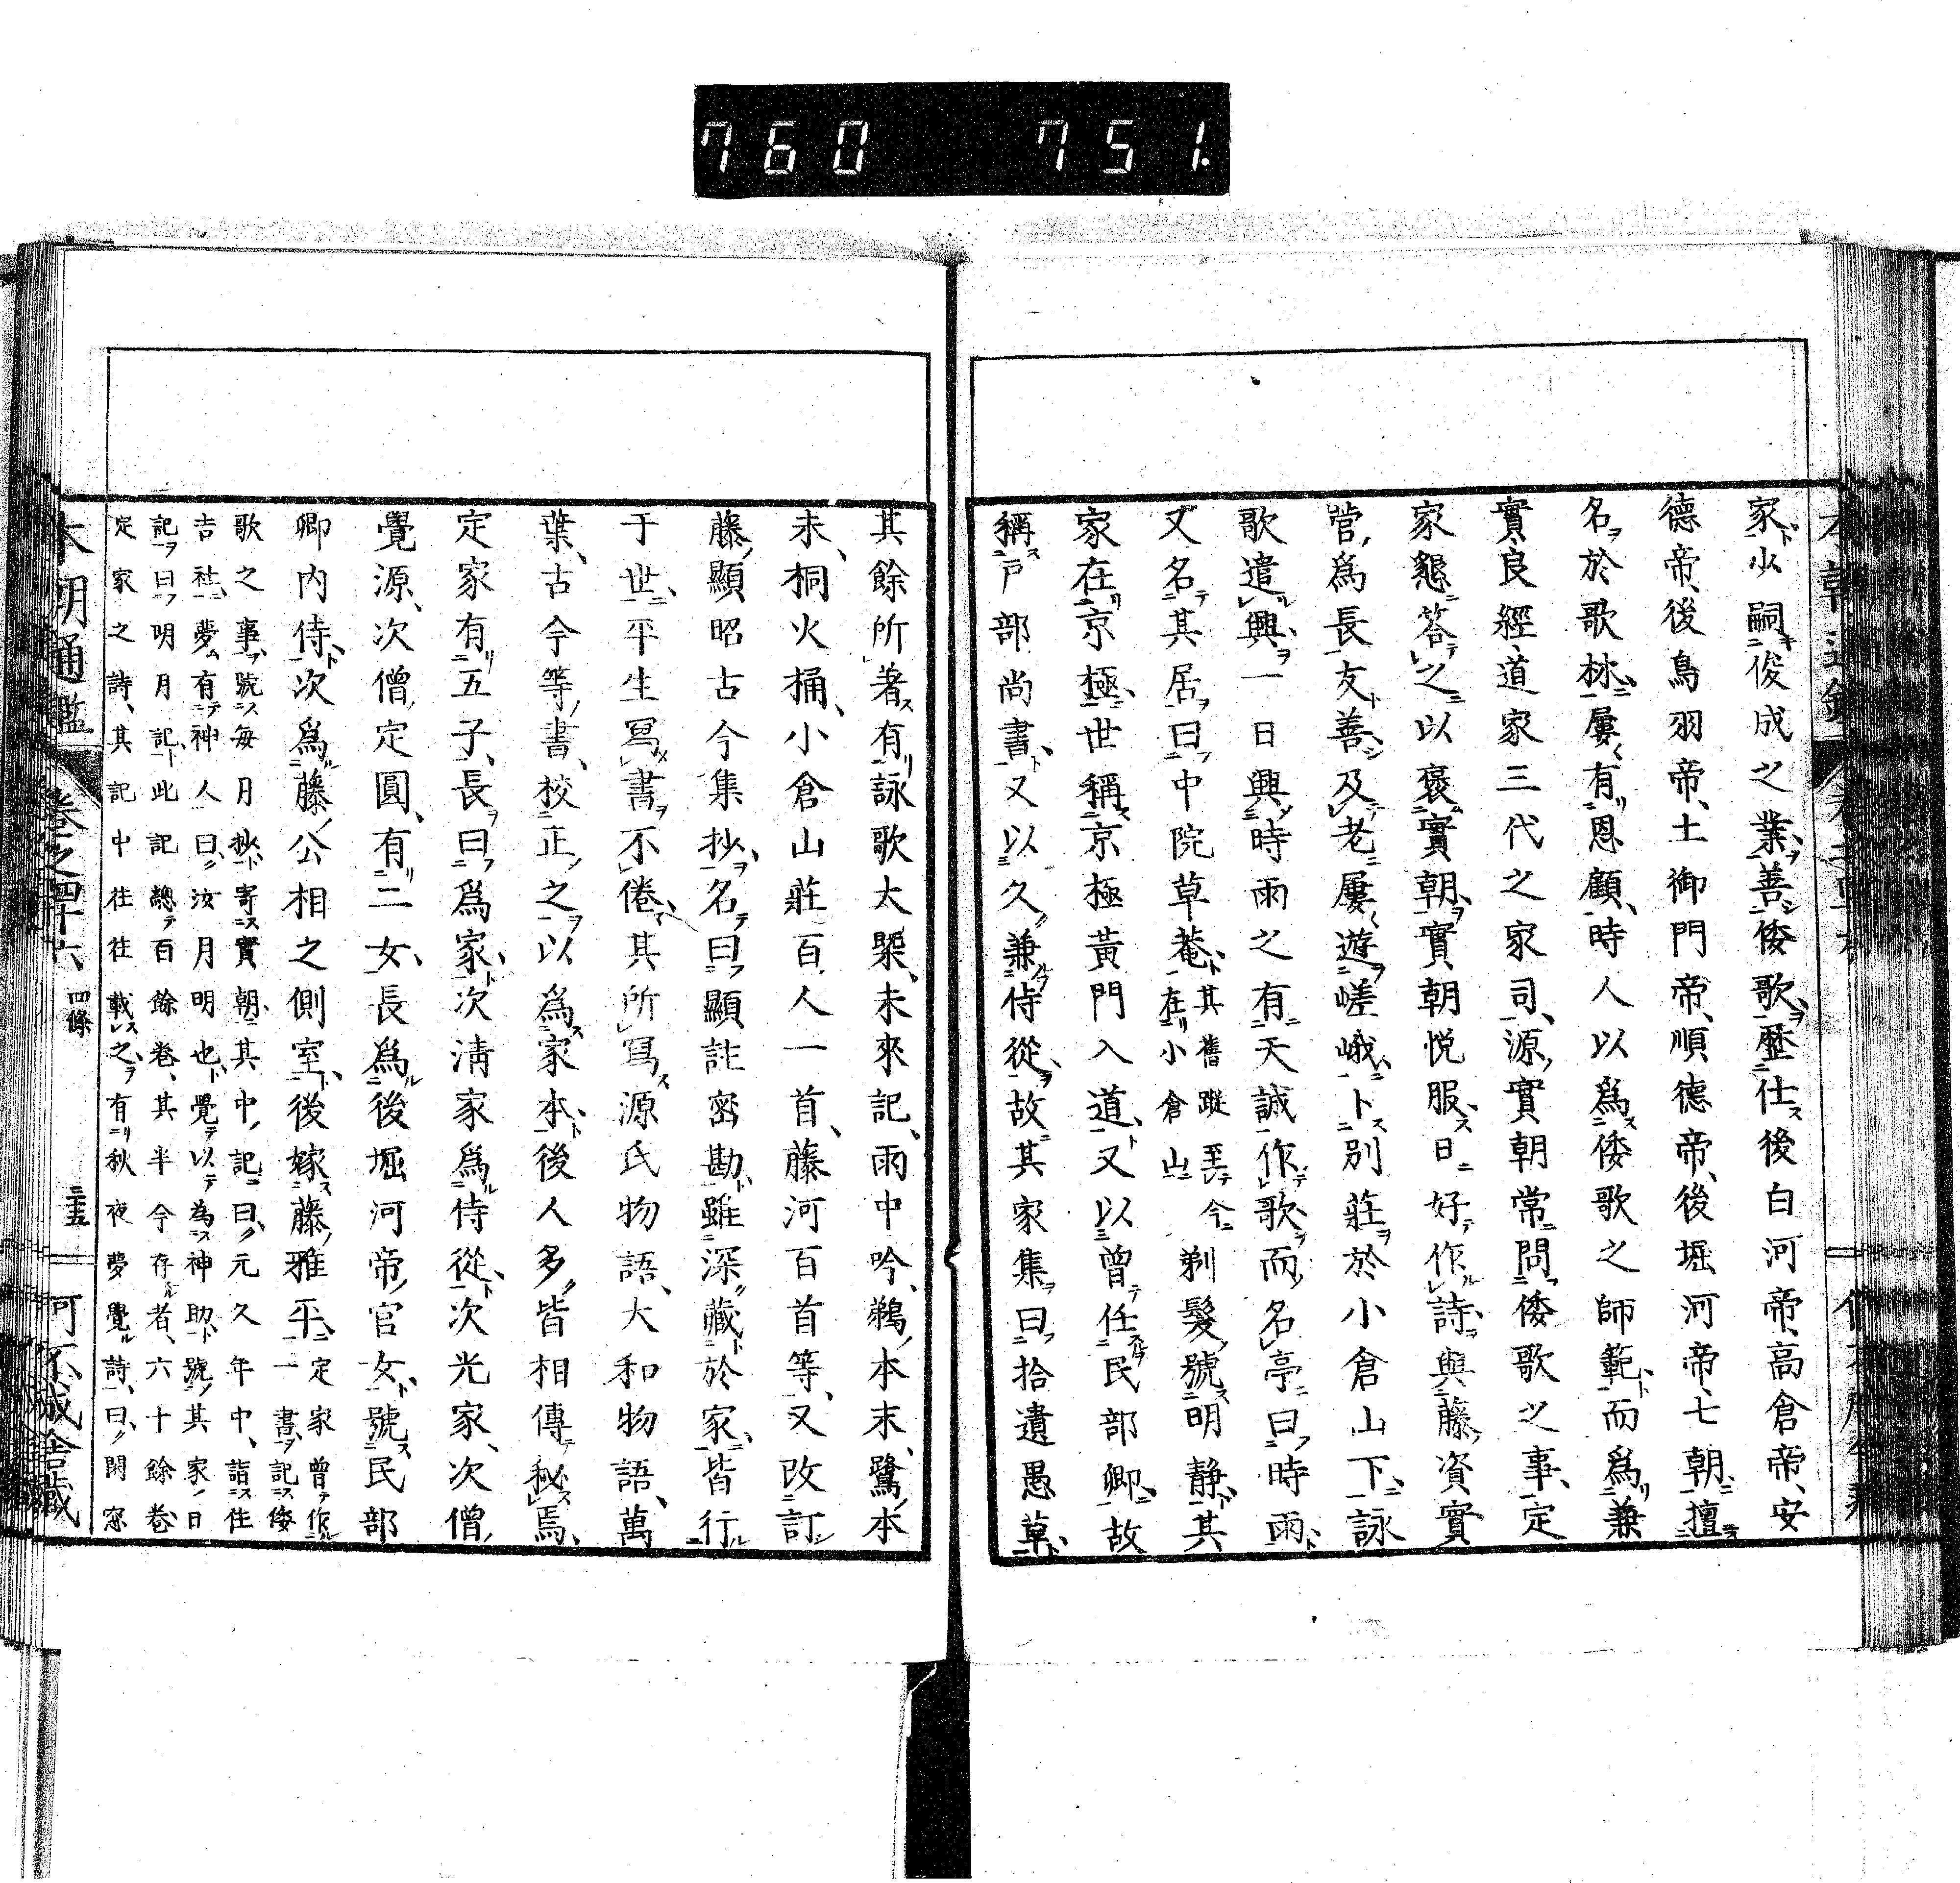 760 751.
家少嗣俊成之業、善倭歌、歷仕後白河帝、高倉帝、安
德帝、後鳥羽帝、土御門帝、順德帝、後堀河帝、七朝、擅
名於歌林、屢有恩顧、時人以爲倭歌之師範、而爲兼
實、良經、道家三代之家司、源實朝常問倭歌之事、定
家懇答之、以褒實朝、實朝悅服、日好作詩、與藤資實
菅爲長友善、及老屢遊嵯峨、卜別莊於小倉山下、詠
歌遣興、一日興時雨之有天誠作歌、而名亭曰時雨、
又名其居曰中院草菴、其舊蹤至今在小倉山剃髮、號明靜、其
家在京極、世稱京極黃門入道、又以曾任民部卿、故
稱戸部尚書、又以久兼侍從、故其家集曰拾遺愚草、
其餘所著有詠歌大槩、未來記、雨中吟、鵜本末、鷺本
末、桐火桶、小倉山莊百人一首、藤河百首等、又改訂
藤顯昭古今集抄、名曰顯註密勘、雖深藏於家、皆行
于世、平生寫書不倦、其所寫源氏物語、大和物語、萬
葉、古今等書、校正之以爲家本、後人多皆相傳秘焉、
定家有五子、長曰爲家、次淸家爲侍從、次光家、次僧
覺源、次僧定圓、有二女、長爲後堀河帝官女、號民部
卿內侍、次爲藤公相之側室、後嫁藤雅平、定家曾作一書記倭
歌之事、號每月抄、寄實朝、其中記曰、元久年中、詣住
吉社、夢有神人曰、汝月明也、覺以為神助、號其家日
記曰明月記、此記總百餘卷、其半今存者、六十餘卷、
定家之詩、其記中往往載之、有秋夜夢覺詩、曰、閑窓
本朝通鑑 卷之四十六 四條 三十五 可不成舍藏